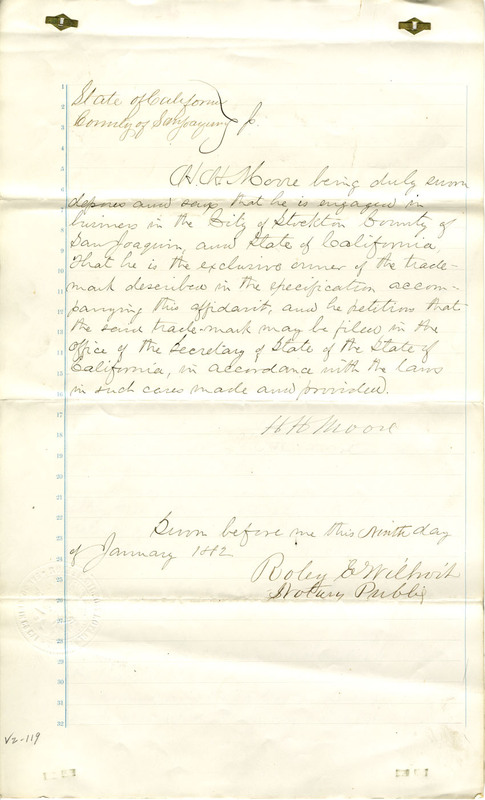 State of California
County of San Joaquin
H H Moore being duly sworn
deposes and says that he is engaged in
business in the City of Stockton County of
San Joaquin, and State of California,
that he is the exclusive owner of the trade-
mark described in the specification accom-
panying this affidavit, and he petitions that
the said trade-mark may be filed in the
office of the Secretary of State of the State of
California, in accordance with the laws
in such cases made and provided.
H H Moore
Sworn before me this Ninth day
of January 1882
Roley E Wilhoit
Notary Public
V2-119
1
2
3
4
5
6
7
8
9
10
11
12
13
14
15
16
17
18
19
20
21
22
23
24
25
26
27
28
29
30
31
32